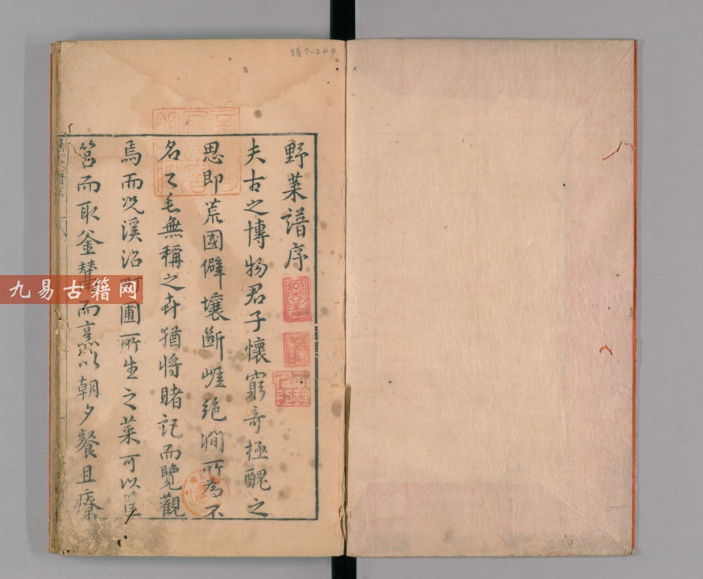 野菜譜序
夫古之博物君子懷窮奇極醜之
思即荒國僻壤斷崕絶澗所為不
名之毛無稱之卉猶將睹記而覽觀
焉而况溪沼圃所生之菜可以
筥而取釜而烹以朝夕餐且療
九易古籍网